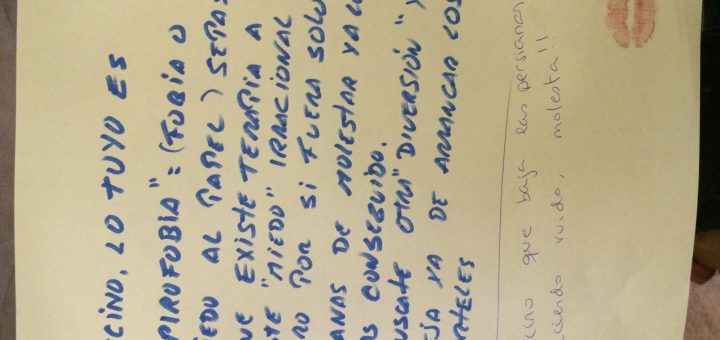 CINO, LO TUYO ES
PIROFOBIA": (FOBIA O
EDO AL PAPEL) SEPAS
UE EXISTE TERAPIA A
TE "MIEDO" IRRACIONAL
RO POR SI FUERA SOLO
ANAS DE MOLESTAR YA LO
AS CONSEGUIDO.
USCATE OTRA "DIVERSIÓN" Y
EJA YA DE ARRANCAR LOS
RTELES
cino que baja las persianas
ciendo ruido, molesta!!